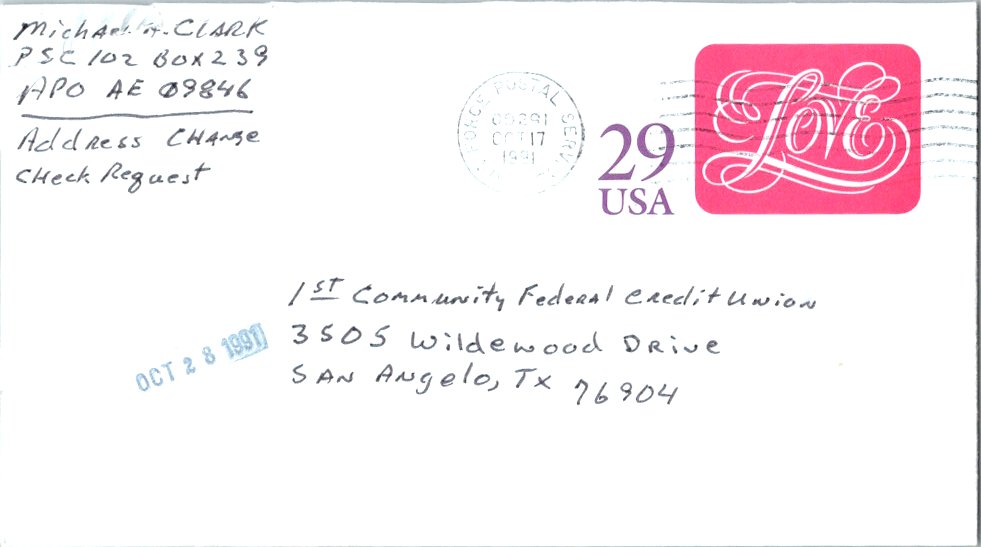 Michael A. CLARK
PSC 102 BOX 239
APO AE 09846
Address CHANGE
CHeck Request
FORCE POSTAL SERV
09291
OCT 17
1991
29
USA
LOVE
1ST Community Federal Credit Union
3505 Wildewood Drive
SAN Angelo, Tx 76904
OCT 28 1991